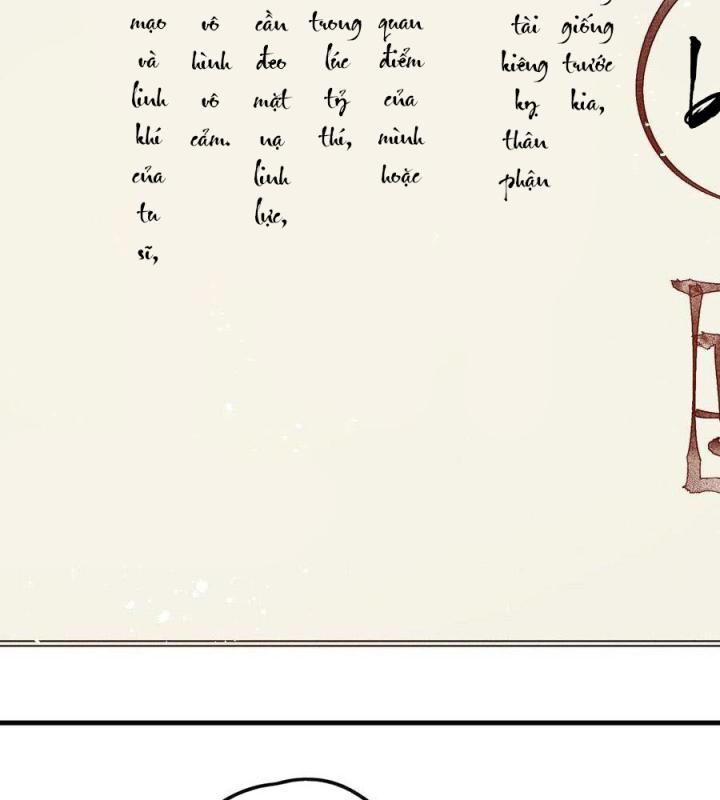 giống trước kia,
tài kiêng kỵ thân phận
quan điểm của mình hoặc
trong lúc tỷ thí,
cần đeo mặt nạ linh lực,
vô hình vô cảm.
mạo và linh khí của tu sĩ,